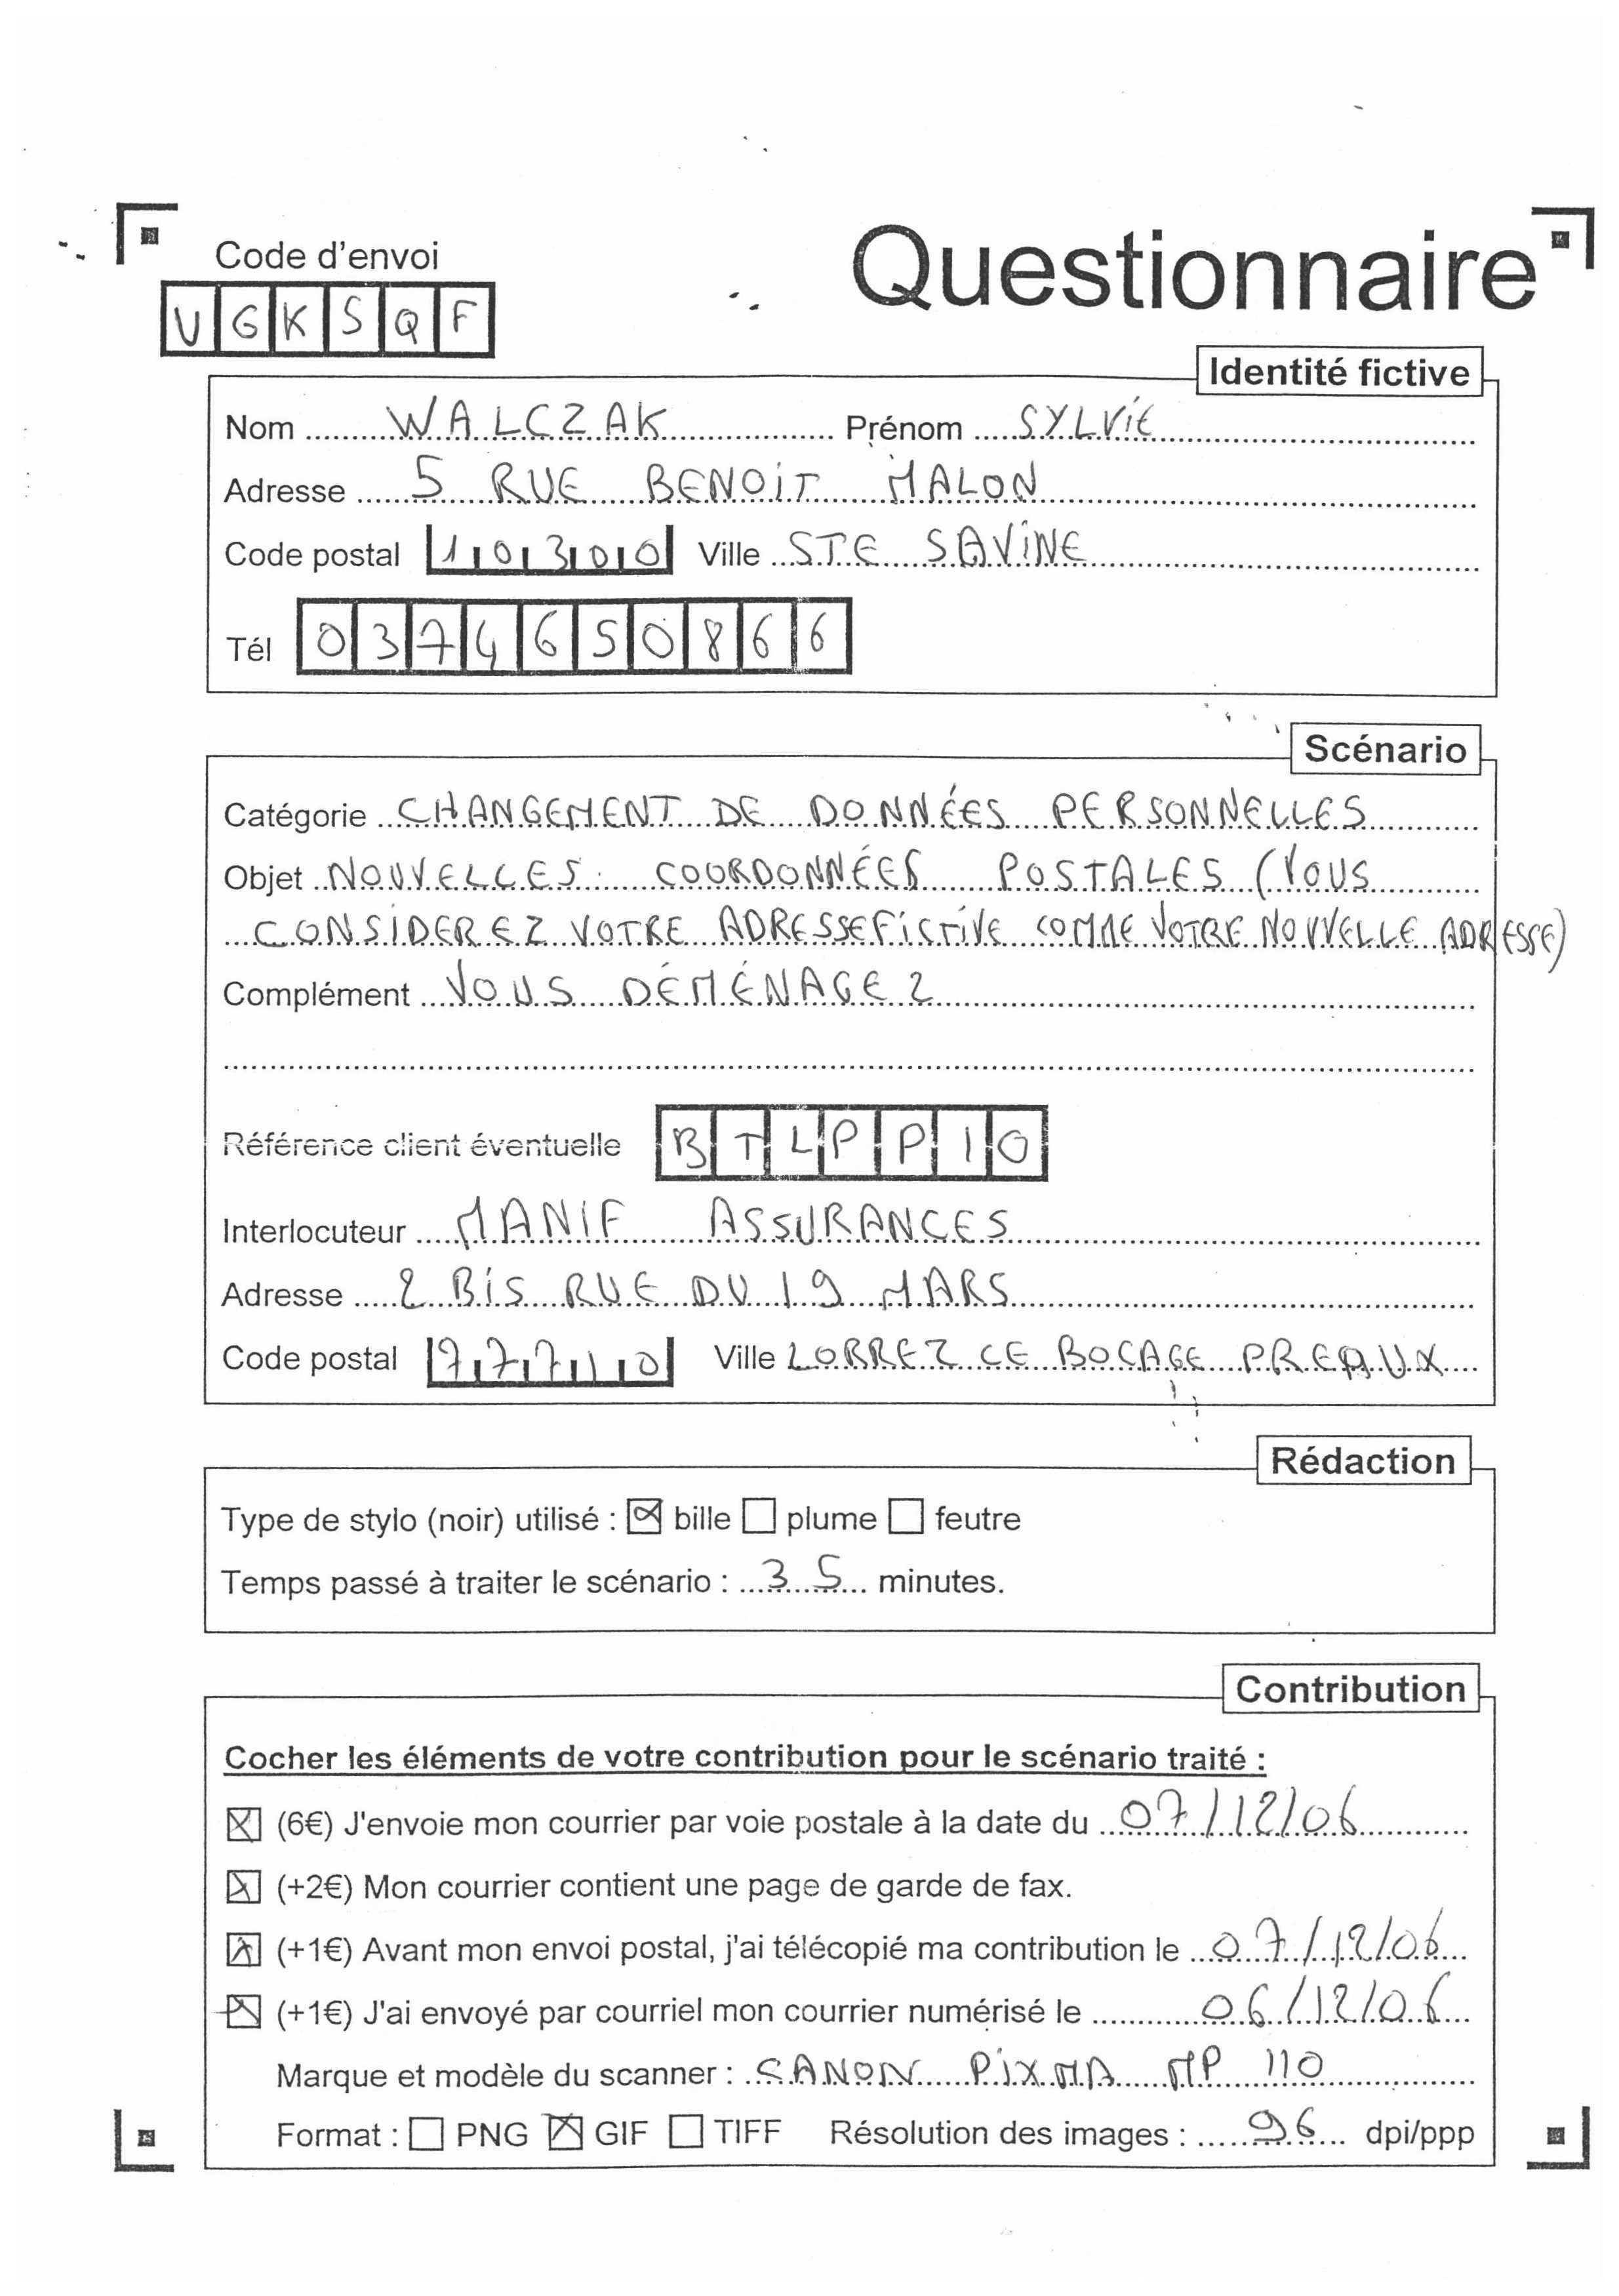 Code d'envoi
Questionnaire
UGKSQF
Identité fictive
Nom WALCZAK Prénom SYLViE
Adresse 5 RUE BENOiT MALON
Code postal 10300 Ville STE SAViNE
Tél 0374650866
Scénario
Catégorie CHANGEMENT DE DONNÉES PERSONNELLES
Objet NOUVELLES COORDONNÉES POSTALES (VOUS
CONSIDEREZ VOTRE ADRESSE FiCTiVE COMME VOTRE NOUVELLE ADRESSE)
Complément VOUS DÉMÉNAGEZ
Référence client éventuelle BTLPP10
Interlocuteur MANiF ASSURANCES
Adresse 2 BiS RUE DU 19 MARS
Code postal 77710 Ville LORREZ LE BOCAGE PREAUX
Rédaction
Type de stylo (noir) utilisé : bille plume feutre
Temps passé à traiter le scénario : 35 minutes.
Contribution
Cocher les éléments de votre contribution pour le scénario traité :
(6€) J'envoie mon courrier par voie postale à la date du 07/12/06
(+2€) Mon courrier contient une page de garde de fax.
(+1€) Avant mon envoi postal, j'ai télécopié ma contribution le 07/12/06
(+1€) J'ai envoyé par courriel mon courrier numérisé le 06/12/06
Marque et modèle du scanner : CANON PiXMA MP 110
Format : PNG GIF TIFF Résolution des images : 96 dpi/ppp